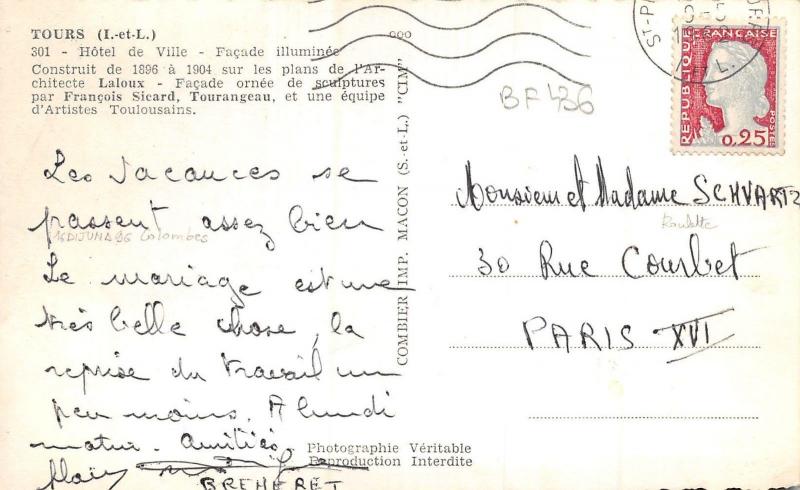 TOURS (I.-et-L.)
301 - Hôtel de Ville - Façade illuminée
Construit de 1896 à 1904 sur les plans de l'Ar-
chitecte Laloux - Façade ornée de sculptures
par François Sicard, Tourangeau, et une équipe
d'Artistes Toulousains.
Les vacances se
passent assez bien
Colombes
Le mariage est une
très belle chose, la
reprise du travail un
peu moins. A lundi
matin. Amitiés.
BREHERET
Photographie Véritable
Reproduction Interdite
COMBIER IMP. MACON (S.-et-L.) "CIM"
BF 436
ST-PI
REPUBLIQUE FRANÇAISE
0,25
POSTES
Monsieur et Madame SCHVARTZ
Roulotte
30 Rue Courbet
PARIS XVI